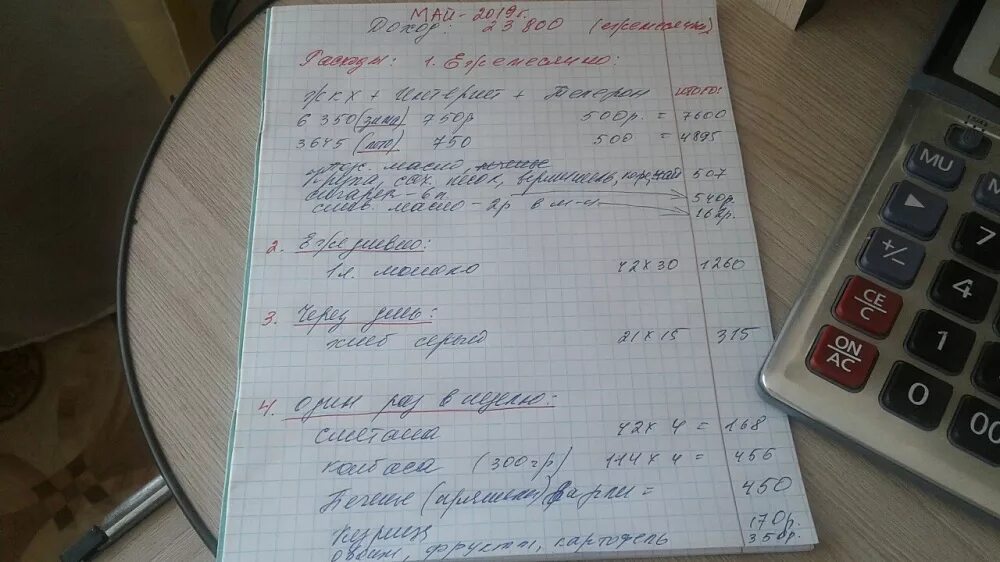 МАЙ - 2019г.
Доход: 23 800 (ежемесячно)
Расходы: 1. Ежемесячно:
ЖКХ + Интернет + Телефон ИТОГО:
6 350 (зима) 750р 500р. = 7600
3645 (лето) 750 500 = 4895
масло,
крупа, сах. песок, вермишель, чай 507
сигарет 6п 540р
слив. масло - 2р в м-ц 162р.
2. Ежедневно:
1л. молоко 42 х 30 1260
3. Через день:
хлеб серый 21 х 15 315
4. Один раз в неделю:
сметана 42 х 4 = 168
колбаса (300гр) 114 х 4 = 456
Печенье (пряники) = 450
Курица 170р.
овощи, фрукты, картофель 350р.
MU
+/-
CE/C
ON/AC
7
4
1
0
00